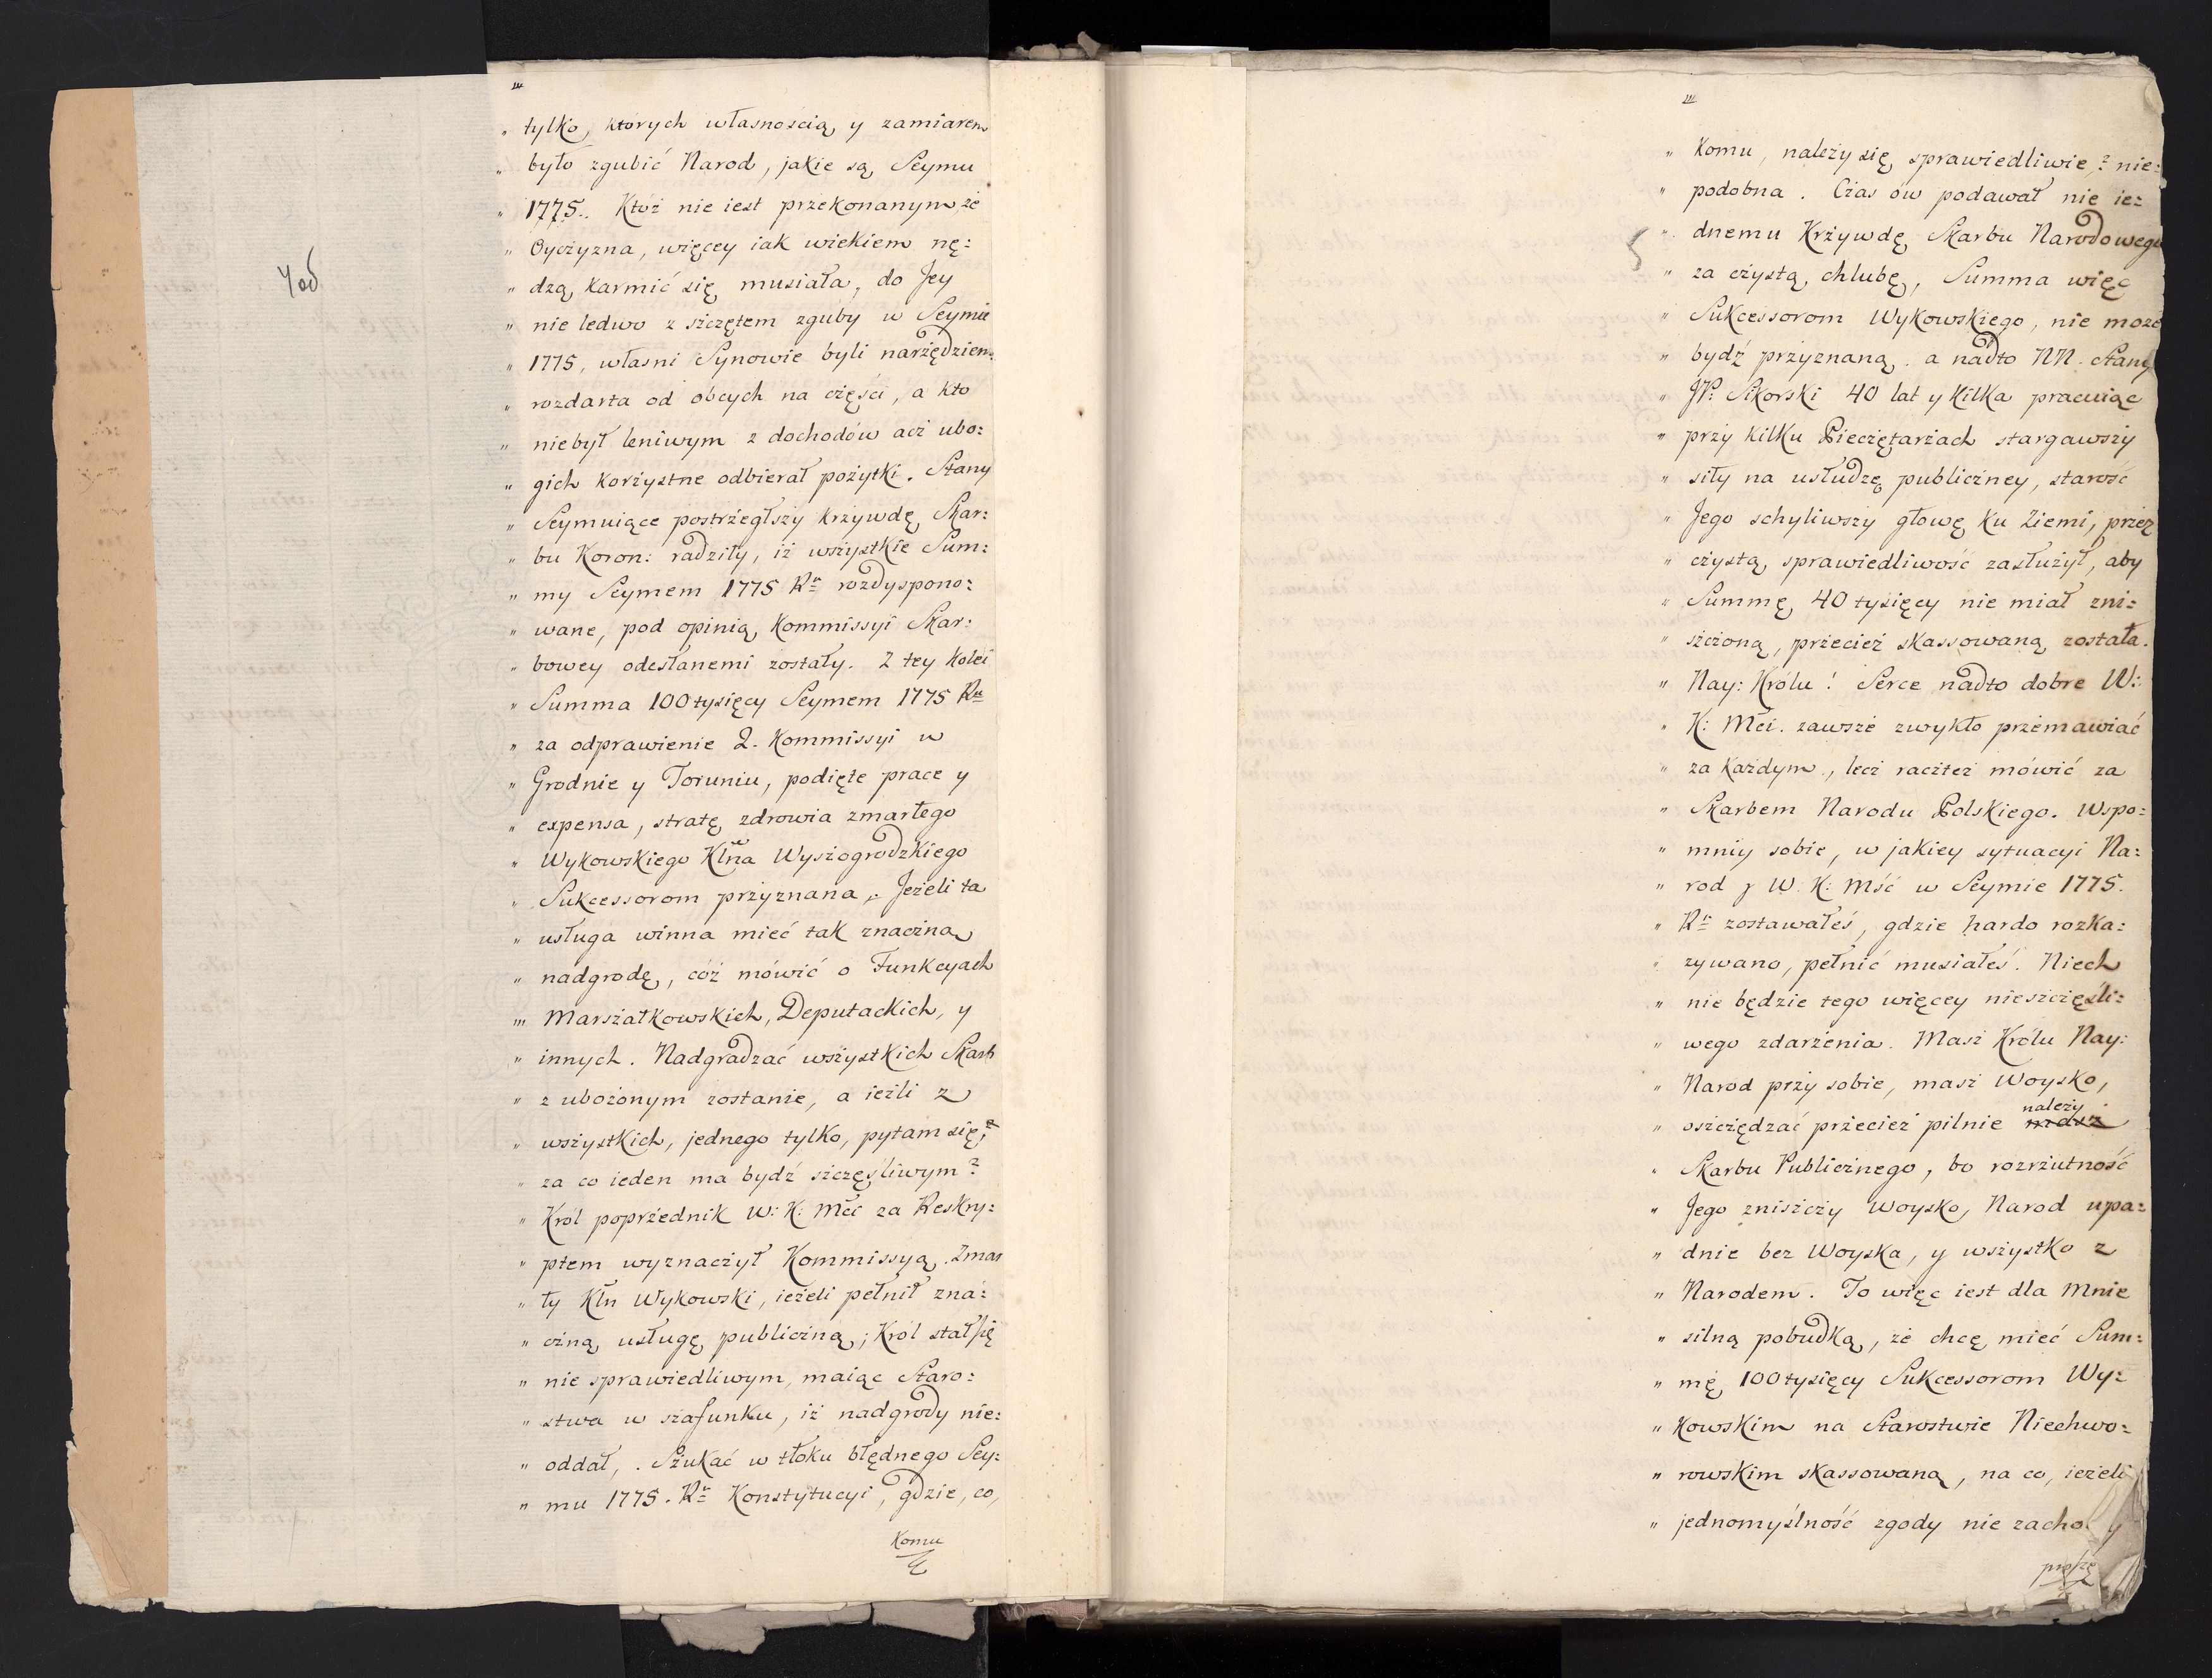 4 об
„ tylko, ktorych własnoscią y zamiarem
„ było zgubić Narod, jakie są Seymu
„ 1775. Ktoż nie iest przekonanym, że
„ Oyczyzna, więcey iak wiekiem nę:
„ dzą karmić się musiała, do Jey
„ nie ledwo z szczętem zguby w Seymie
„ 1775, własni Synowie byli narzędziem
„ rozdarta od obcych na części, a kto
„ niebył leniwym z dochodów acz ubo:
„ gich korzystne odbierał pożytki. Stany
„ Seymuiące postrzegłszy krzywdę Skar:
„ bu Koron: radziły, iż wszystkie Sum:
„ my Seymem 1775 Ru rozdyspono:
„ wane, pod opinią Kommissyi Skar:
„ bowey odesłanemi zostały. Z tey kolei
„ Summa 100 tysięcy Seymem 1775 Ru
„ za odprawienie 2. Kommissyi w
„ Grodnie y Toruniu, podięte prace y
„ expensa, stratę zdrowia zmarłego
„ Wykowskiego Kłna Wyszogrodzkiego
„ Sukcessorom przyznana. Jeżeli ta
„ usługa winna mieć tak znaczną
„ nadgrodę, cóż mówić o Funkcyach
„ Marszałkowskich, Deputackich, y
„ innych. Nadgradzać wszystkich Skarb
„ z ubożonym zostanie, a ieżli z
„ wszystkich, jednego tylko, pytam się?
„ za co ieden ma bydź szczęśliwym?
„ Król poprzednik W: K: Mći za Reskry:
„ ptem wyznaczył Kommissyą. Zmar
„ ły Kłn Wykowski, ieżeli pełnił zna:
„ czną usługę publiczną; Król stał się
„ nie sprawiedliwym, maiąc Staro:
„ stwa w szafunku, iż nadgrody nie:
„ oddał, . Szukać w tłoku błędnego Sey:
„ mu 1775. Ru Konstytucyi, gdzie, co,
Komu
„ Komu, należy się sprawiedliwie? nie:
„ podobna. Czas ów podawał nie ie:
„ dnemu Krzywdę Skarbu Narodowego
„ za czystą chlubę, Summa więc
„ Sukcessorom Wykowskiego, nie może
„ bydź przyznaną. a nadto NN. Stany
„ JP: Sikorski 40 lat y kilka pracuiąc
„ przy kilku Pieczętarzach stargawszy
„ siły na usłudze publiczney, starość
„ Jego schyliwszy głowę ku Ziemi, przez
„ czystą sprawiedliwość zasłużył, aby
„ Summę 40 tysięcy nie miał zni:
„ szczoną, przecież skassowaną została.
„ Nay: Królu! Serce nadto dobre W:
„ K: Mći. zawsze zwykło przemawiać
„ za każdym, lecz racz też mówić za
„ Skarbem Narodu Polskiego. Wspo:
„ mniy sobie, w jakiey sytuacyi Na:
„ rod y W. K: Mść w Seymie 1775.
„ Ru zostawałeś, gdzie hardo rozka:
„ zywano, pełnić musiałeś. Niech
„ nie będzie tego więcey nieszczęśli:
„ wego zdarzenia. Masz Królu Nay:
„ Narod przy sobie, masz Woysko,
„ oszczędzać przecież pilnie należy masz
„ Skarbu Publicznego, bo rozrzutność
„ Jego zniszczy Woysko, Narod upa:
„ dnie bez Woyska, y wszystko z
„ Narodem. To więc iest dla Mnie
„ silną pobudką, że chcę mieć Sum:
„ mę 100 tysięcy Sukcessorom Wy:
„ kowskim na Starostwie Niechwo:
„ rowskim skassowaną, na co, ieżeli
„ jednomyślność zgody nie
proszę